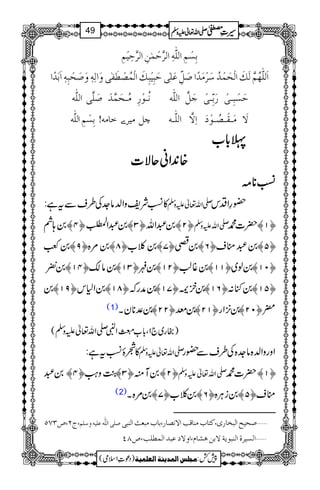 سیرتِ مصطفیٰ صلی اللہ تعالیٰ علیہ وسلم 49
بِسْمِ اللّٰهِ الرَّحْمٰنِ الرَّحِيْمِ
اَللّٰهُمَّ لَكَ الْحَمْدُ سَرْمَدًا صَلِّ عَلٰى حَبِيْبِكَ الْمُصْطَفٰى وَاٰلِهٖ وَصَحْبِهٖ اَبَدًا
حَسْبِىْ رَبِّىْ جَلَّ اللّٰه نُوْرِ مُحَمَّدْ صَلَّى اللّٰه
لَا مَقْصُوْدَ اِلَّا اللّٰه چل میرے خامہ! بِسْمِ اللّٰه
پہلا باب
خاندانی حالات
نسب نامہ
حضورِ اقدس صلی اللہ تعالیٰ علیہ وسلم کا نسب شریف والد ماجد کی طرف سے یہ ہے:
﴿۱﴾ حضرت محمد صلی اللہ تعالیٰ علیہ وسلم ﴿۲﴾ بن عبداللہ ﴿۳﴾ بن عبدالمطلب ﴿۴﴾ بن ہاشم
﴿۵﴾ بن عبد مناف ﴿۶﴾ بن قصی ﴿۷﴾ بن کلاب ﴿۸﴾ بن مرہ ﴿۹﴾ بن کعب
﴿۱۰﴾ بن لوی ﴿۱۱﴾ بن غالب ﴿۱۲﴾ بن فہر ﴿۱۳﴾ بن مالک ﴿۱۴﴾ بن نضر
﴿۱۵﴾ بن کنانہ ﴿۱۶﴾ بن خزیمہ ﴿۱۷﴾ بن مدرکہ ﴿۱۸﴾ بن الیاس ﴿۱۹﴾ بن
مضر ﴿۲۰﴾ بن نزار ﴿۲۱﴾ بن معد ﴿۲۲﴾ بن عدنان۔ (1)
(بخاری ج۱، باب مبعث النبی صلی اللہ تعالیٰ علیہ وسلم)
اور والدہ ماجدہ کی طرف سے حضور صلی اللہ تعالیٰ علیہ وسلم کا شجرۂ نسب یہ ہے:
﴿۱﴾ حضرت محمد صلی اللہ تعالیٰ علیہ وسلم ﴿۲﴾ بن آمنہ ﴿۳﴾ بنت وہب ﴿۴﴾ بن عبد
مناف ﴿۵﴾ بن زہرہ ﴿۶﴾ بن کلاب ﴿۷﴾ بن مرہ۔ (2)
......صحیح البخاری، کتاب مناقب الانصار، باب مبعث النبی صلی اللہ علیہ وسلم، ج۲، ص۵۷۳
......السیرۃ النبویۃ لابن ھشام، اولاد عبد المطلب، ص۴۸
پیش کش: مجلس المدینة العلمیة (دعوتِ اسلامی)